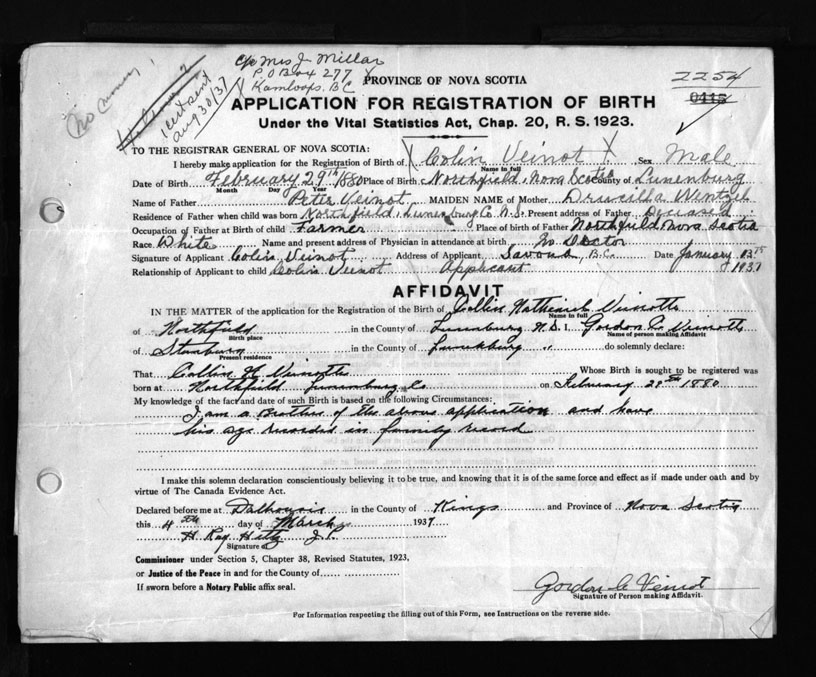 c/o Mrs J Millar
P O Box 277
Kamloops. B C
No money
1 cert sent
Aug 30/37
2254
0445
PROVINCE OF NOVA SCOTIA
APPLICATION FOR REGISTRATION OF BIRTH
Under the Vital Statistics Act, Chap. 20, R. S. 1923.
TO THE REGISTRAR GENERAL OF NOVA SCOTIA:
I hereby make application for the Registration of Birth of Colin Veinot Sex Male
Name in full
Date of Birth February 29th 1880 Place of Birth Northfield, Nova Scotia County of Lunenburg
Month Day Year
Name of Father Peter Veinot MAIDEN NAME of Mother Druscilla Wentzel
Residence of Father when child was born Northfield, Lunenburg Co. N.S. Present address of Father Deceased
Occupation of Father at Birth of child Farmer Place of birth of Father Northfield Nova Scotia
Race White Name and present address of Physician in attendance at birth No Doctor
Signature of Applicant Colin Veinot Address of Applicant Savona, B.C. Date January 13th
Relationship of Applicant to child Colin Veinot Applicant 1937
AFFIDAVIT
IN THE MATTER of the application for the Registration of Birth of Collin Nathaniel Veinotte
Name in full
of Northfield in the County of Lunenburg N.S. I, Gordon C Veinotte
Birth place Name of person making Affidavit
of Stanburn in the County of Lunenburg do solemnly declare:
Present residence
That Collin N Veinotte Whose Birth is sought to be registered was
born at Northfield Lunenburg Co on February 29th 1880
My knowledge of the fact and date of such Birth is based on the following Circumstances:
I am a Brother of the above application and have
his age recorded in family record
I make this solemn declaration conscientiously believing it to be true, and knowing that it is of the same force and effect as if made under oath and by
virtue of The Canada Evidence Act.
Declared before me at Dalhousie in the County of Kings and Province of Nova Scotia
this 4th day of March 1937
H. Ray Hiltz J.P.
Signature of
Commissioner under Section 5, Chapter 38, Revised Statutes, 1923,
or Justice of the Peace in and for the County of
If sworn before a Notary Public affix seal.
Gordon C Veinot
Signature of Person making Affidavit.
For Information respecting the filling out of this Form, see Instructions on the reverse side.